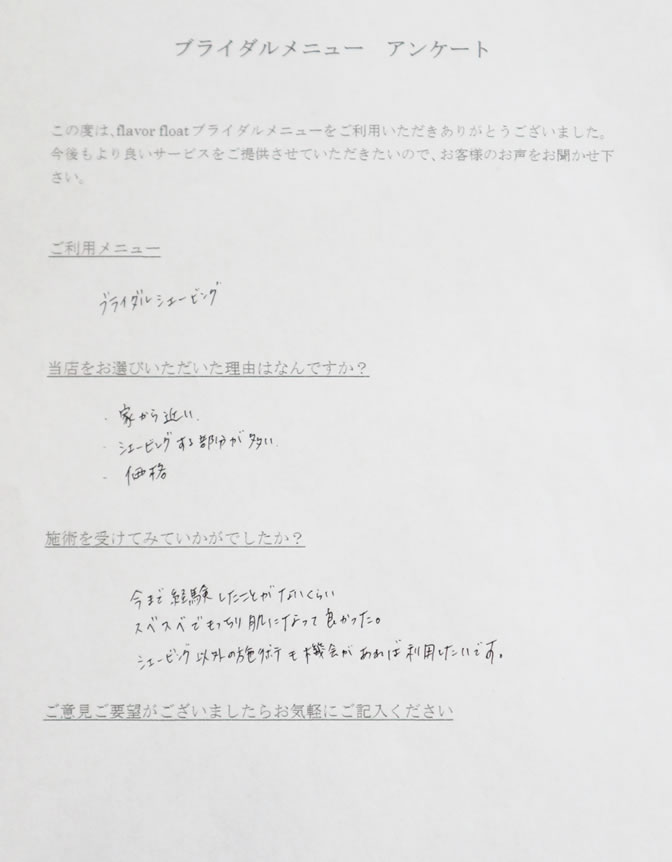 ブライダルメニュー　アンケート
この度は、flavor floatブライダルメニューをご利用いただきありがとうございました。
今後もより良いサービスをご提供させていただきたいので、お客様のお声をお聞かせ下
さい。
ご利用メニュー
ブライダルシェービング
当店をお選びいただいた理由はなんですか？
・家から近い.
・シェービングする部分が多い.
・価格
施術を受けてみていかがでしたか？
今まで経験したことがないくらい
スベスベでもっちり肌になって良かった。
シェービング以外の施術も機会があれば利用したいです。
ご意見ご要望がございましたらお気軽にご記入ください